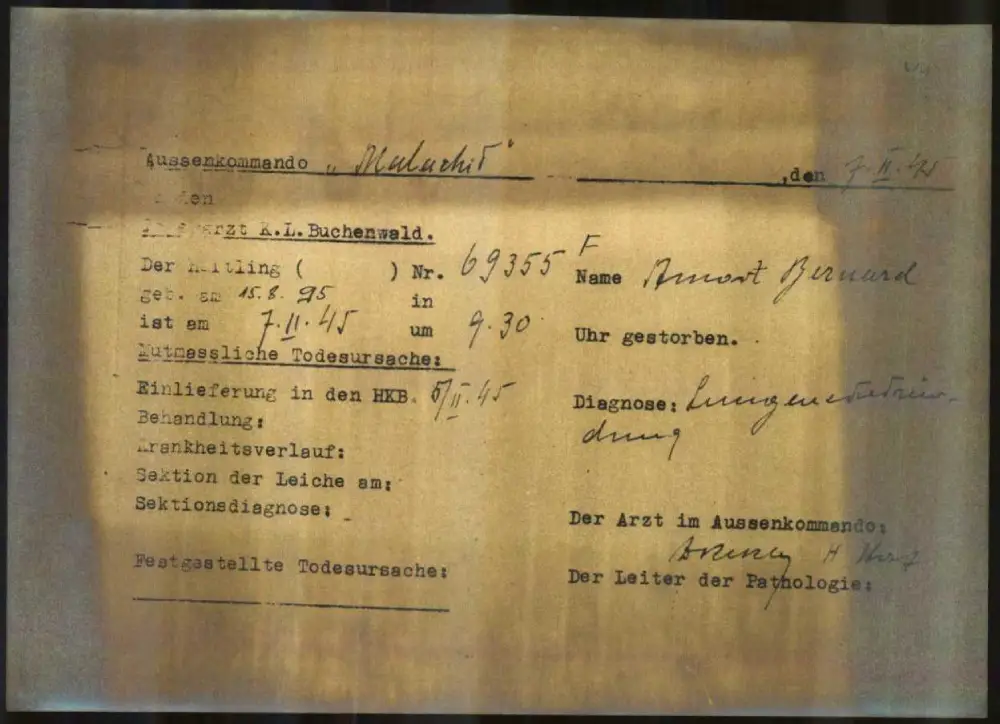 Aussenkommando „Malachit" , den 7. II. 45
den
arzt K.L.Buchenwald.
Der Häftling ( ) Nr. 69355 F Name Bernard
geb. am 15.8. 95 in
ist am 7.II.45 um 9.30 Uhr gestorben.
Mutmassliche Todesursache:
Einlieferung in den HKB. II.45 Diagnose: Lungenentzün-
dung
Behandlung:
Krankheitsverlauf:
Sektion der Leiche am:
Sektionsdiagnose:
Der Arzt im Aussenkommando:
Festgestellte Todesursache:
Der Leiter der Pathologie: